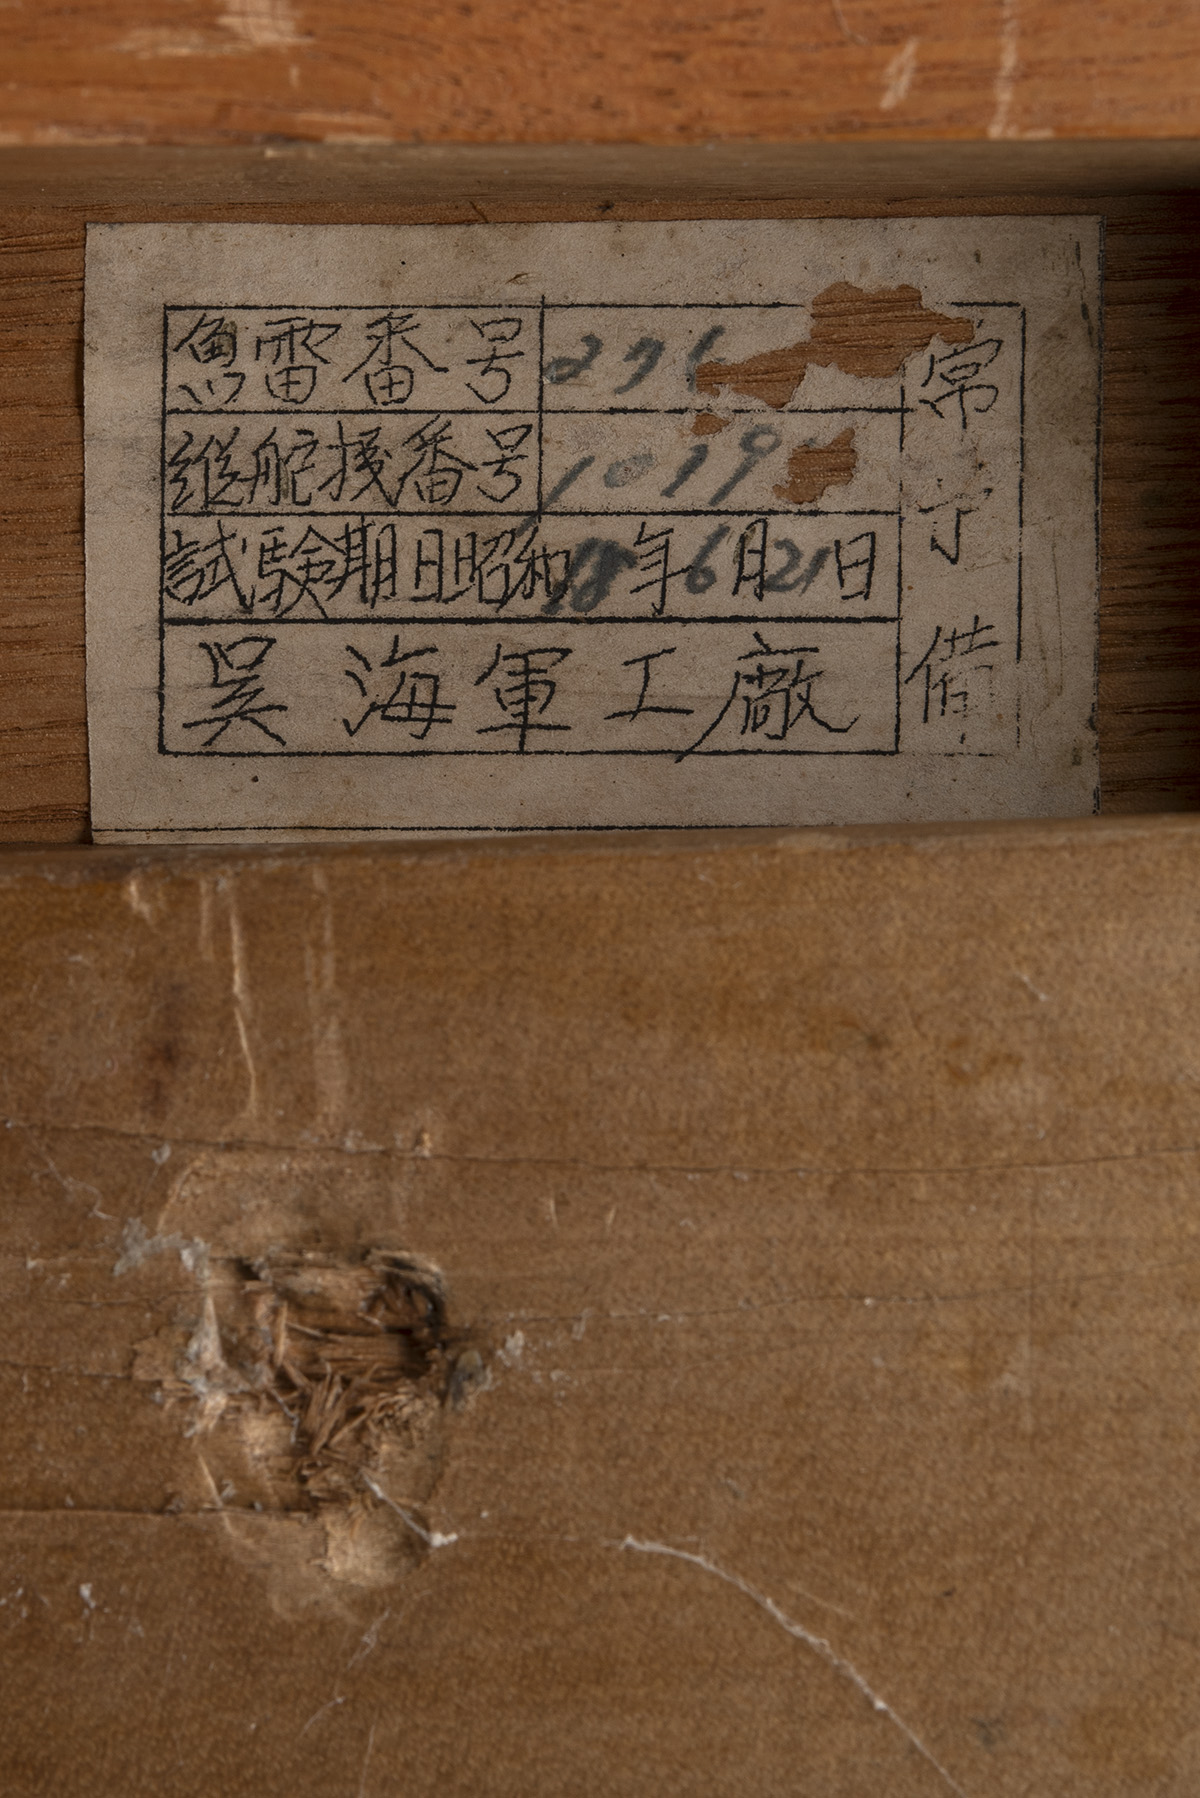 魚雷番号 276
縦舵機番号 1019
試験期日昭和18年6月21日
呉海軍工廠
常予備